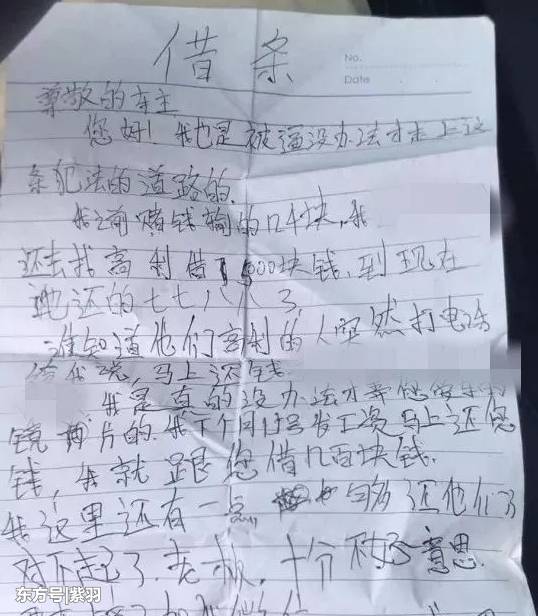 借条
No.
Date
尊敬的车主
您好!我也是被逼没办法才走上这
条犯法的道路的.
我之前赌钱输的几千块,我
还去找高利借1500块钱,到现在
也还的七七八八了,
谁知道他们高利的人突然打电话
给我说,马上还钱
我是真的没办法才弄您
镜片的.我下个月15号发工资马上还您
钱,我就跟您借几百块钱.
我这里还有一点 够了还他们了
对不起了.老板.十分不好意思.
东方号|紫羽